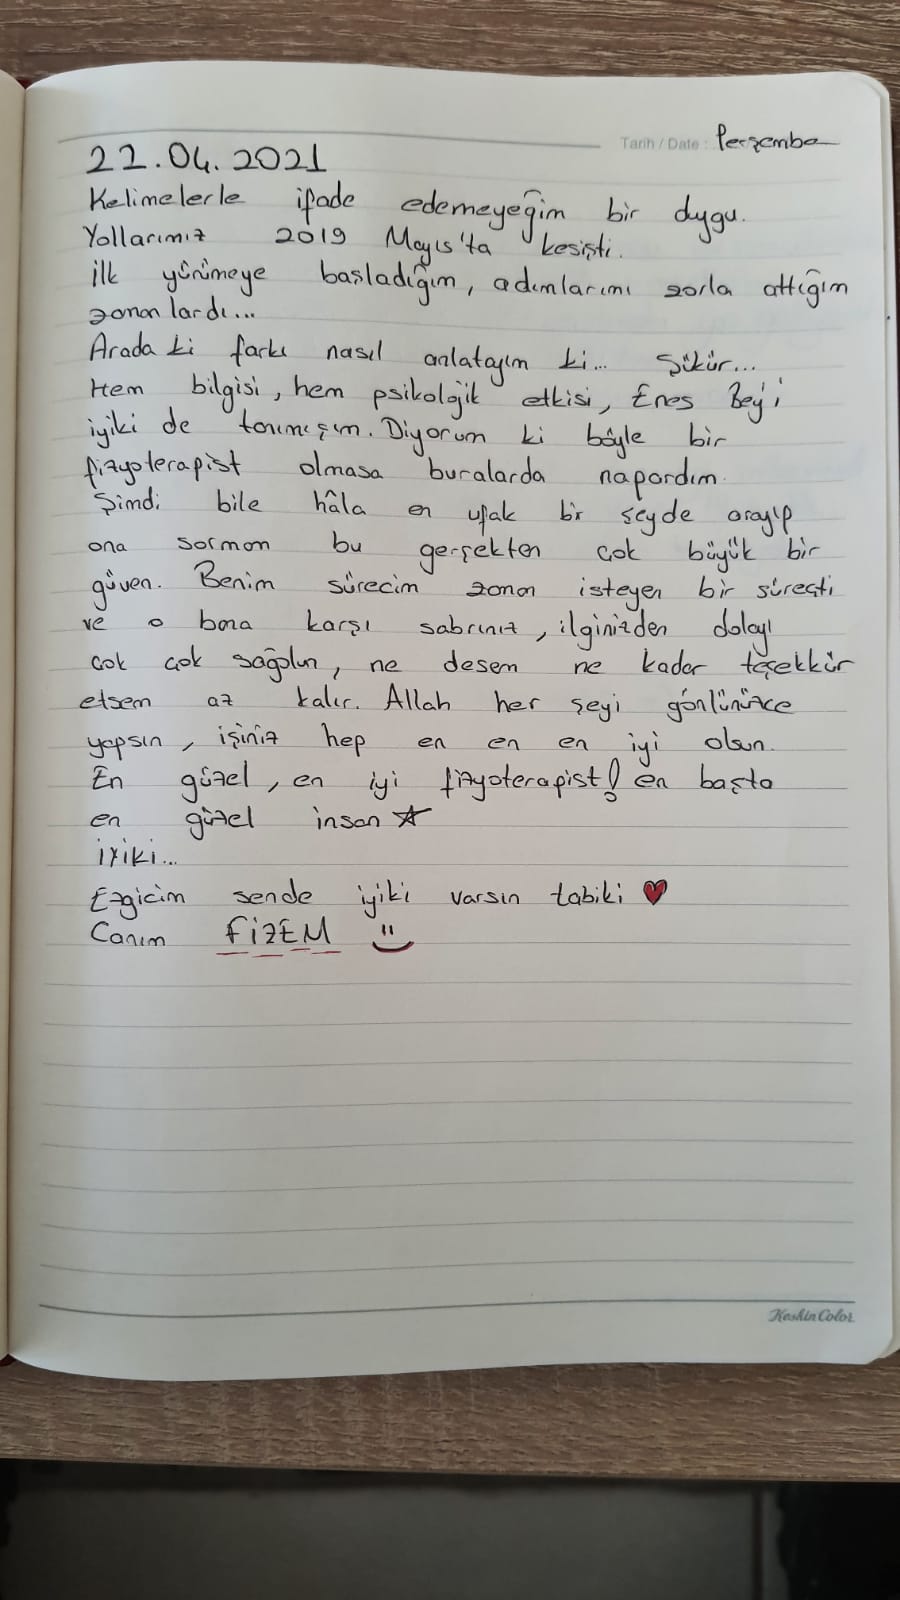 Tarih / Date : Perşembe
22.04.2021
Kelimelerle ifade edemeyeğim bir duygu.
Yollarımız 2019 Mayıs'ta kesişti.
ilk yürümeye başladığım, adımlarımı zorla attığım
zamanlardı...
Arada ki farkı nasıl anlatayım ki... Şükür...
Hem bilgisi, hem psikolojik etkisi, Enes Bey'i
iyiki de tanımışım. Diyorum ki böyle bir
fizyoterapist olmasa buralarda napardım.
Şimdi bile hâla en ufak bir şeyde arayıp
ona sormam bu gerçekten çok büyük bir
güven. Benim sürecim zaman isteyen bir süreçti
ve o bana karşı sabrınız, ilginizden dolayı
çok çok sağolun, ne desem ne kadar teşekkür
etsem az kalır. Allah her şeyi gönlünüzce
yapsın, işiniz hep en en en iyi olsun.
En güzel, en iyi fizyoterapist! en başta
en güzel insan ☆
iyiki...
Ezgicim sende iyiki varsın tabiki ♥
Canım FİZEM
KeskinColor